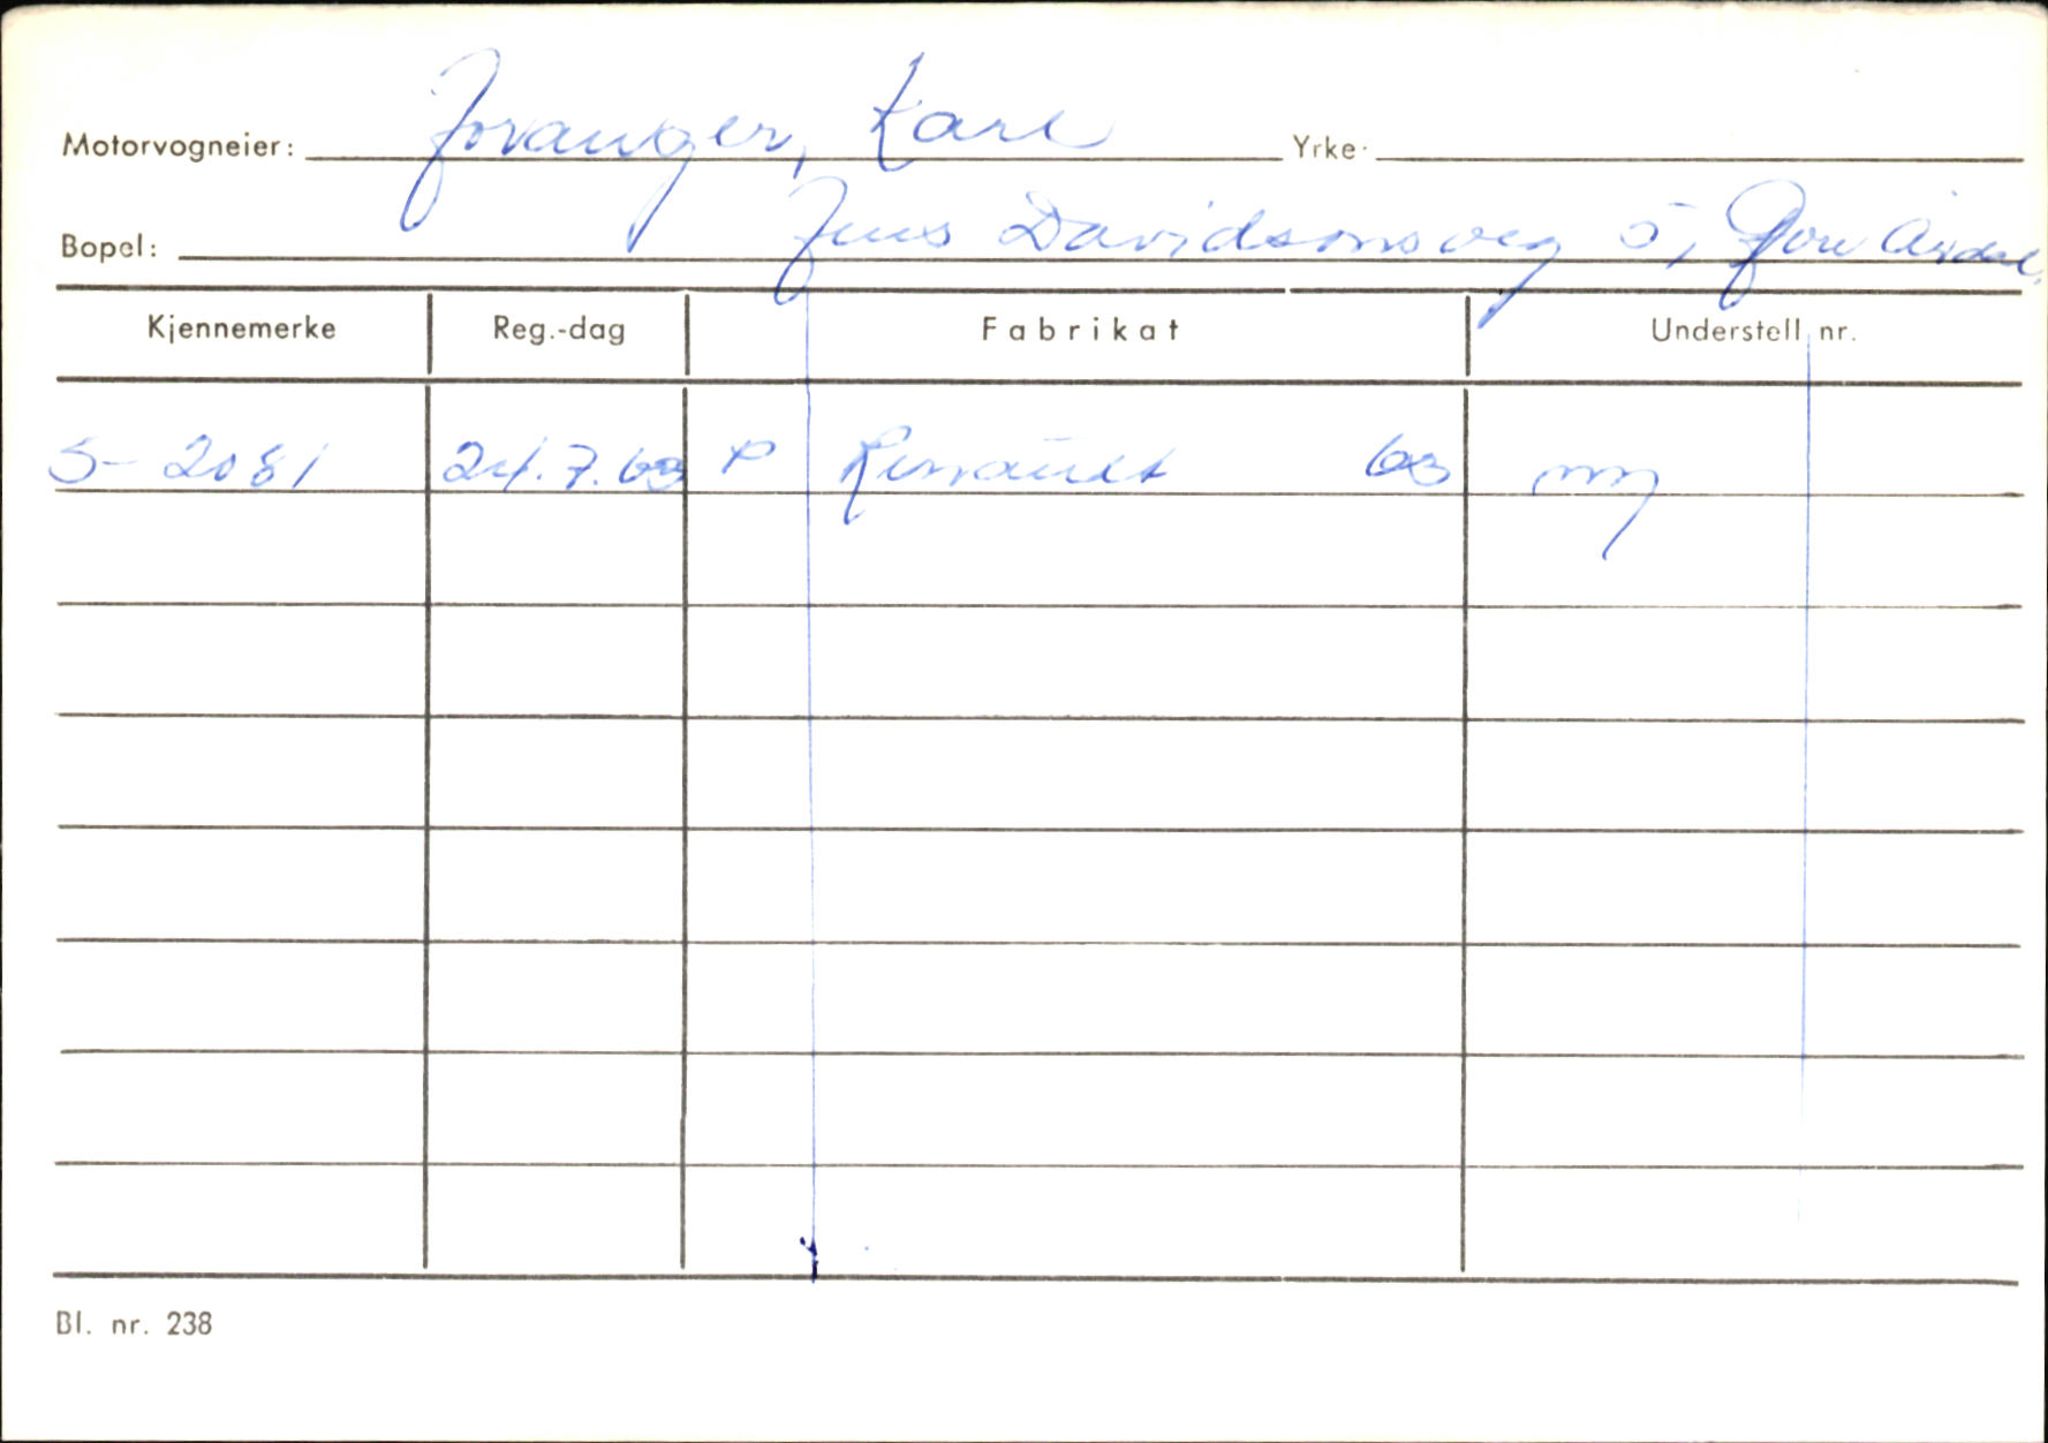 Motorvogneier: Joranger, Kåre Yrke:
Bopel: Jens Davidsonsveg 5, Øvre Årdal
Kjennemerke Reg.-dag Fabrikat Understell nr.
S-2081 24.7.63 P Renault 63 ny
Bl. nr. 238